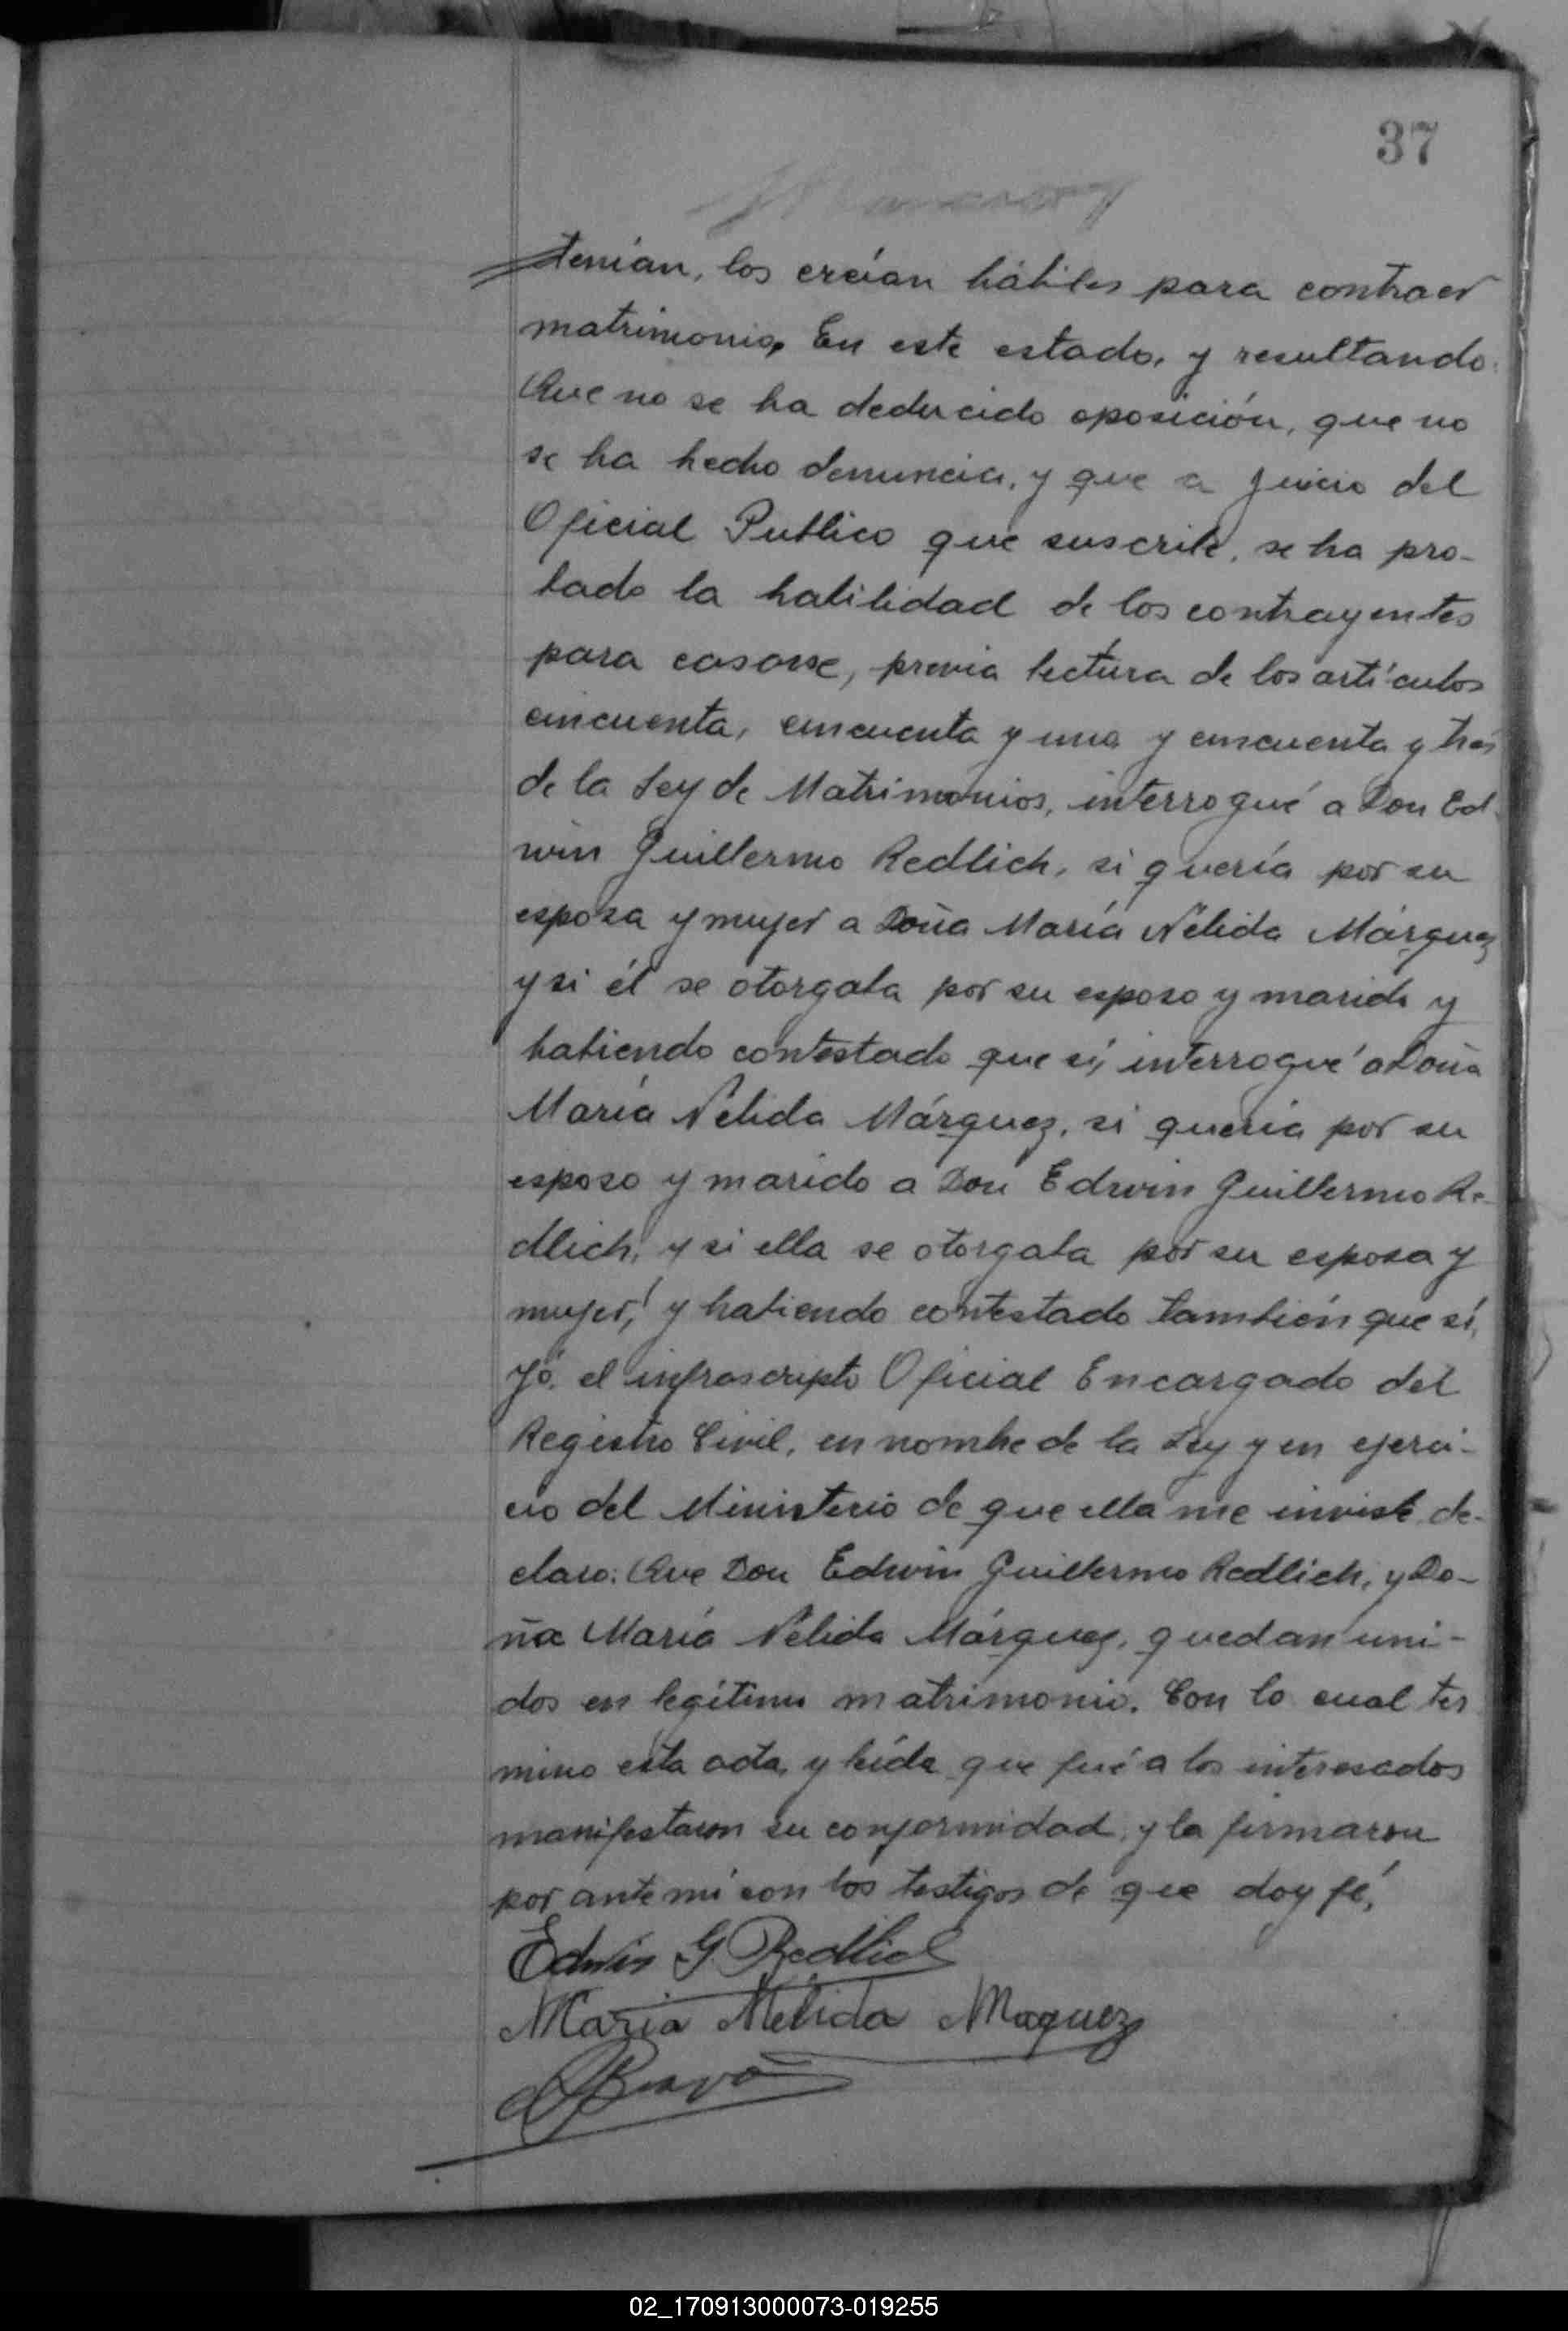 37
tenían, los creían hábiles para contraer
matrimonio. En este estado, y resultando:
Que no se ha deducido oposición, que no
se ha hecho denuncia, y que a juicio del
Oficial Publico que suscribe, se ha pro-
bado la habilidad de los contrayentes
para casarse, previa lectura de los artículos
cincuenta, cincuenta y uno y cincuenta y tres
de la Ley de Matrimonios, interrogué a Don Ed-
win Guillermo Redlich, si quería por su
esposa y mujer a Doña María Nélida Márquez
y si él se otorgaba por su esposo y marido y
habiendo contestado que sí, interrogué a Doña
María Nélida Márquez, si quería por su
esposo y marido a Don Edwin Guillermo Re-
dlich, y si ella se otorgaba por su esposa y
mujer, y habiendo contestado también que sí,
Yó, el infrascripto Oficial Encargado del
Registro Civil, en nombre de la Ley y en ejerci-
cio del Ministerio de que ella me inviste de-
claro: Que Don Edwin Guillermo Redlich, y Do-
ña María Nélida Márquez, quedan uni-
dos en legítimo matrimonio. Con lo cual ter
mino esta acta, y leída que fué a los interesados
manifestaron su conformidad, y la firmaron
por ante mí con los testigos de que doy fé,
Edwin G Redlich
Maria Nélida Maquez
02_170913000073-019255